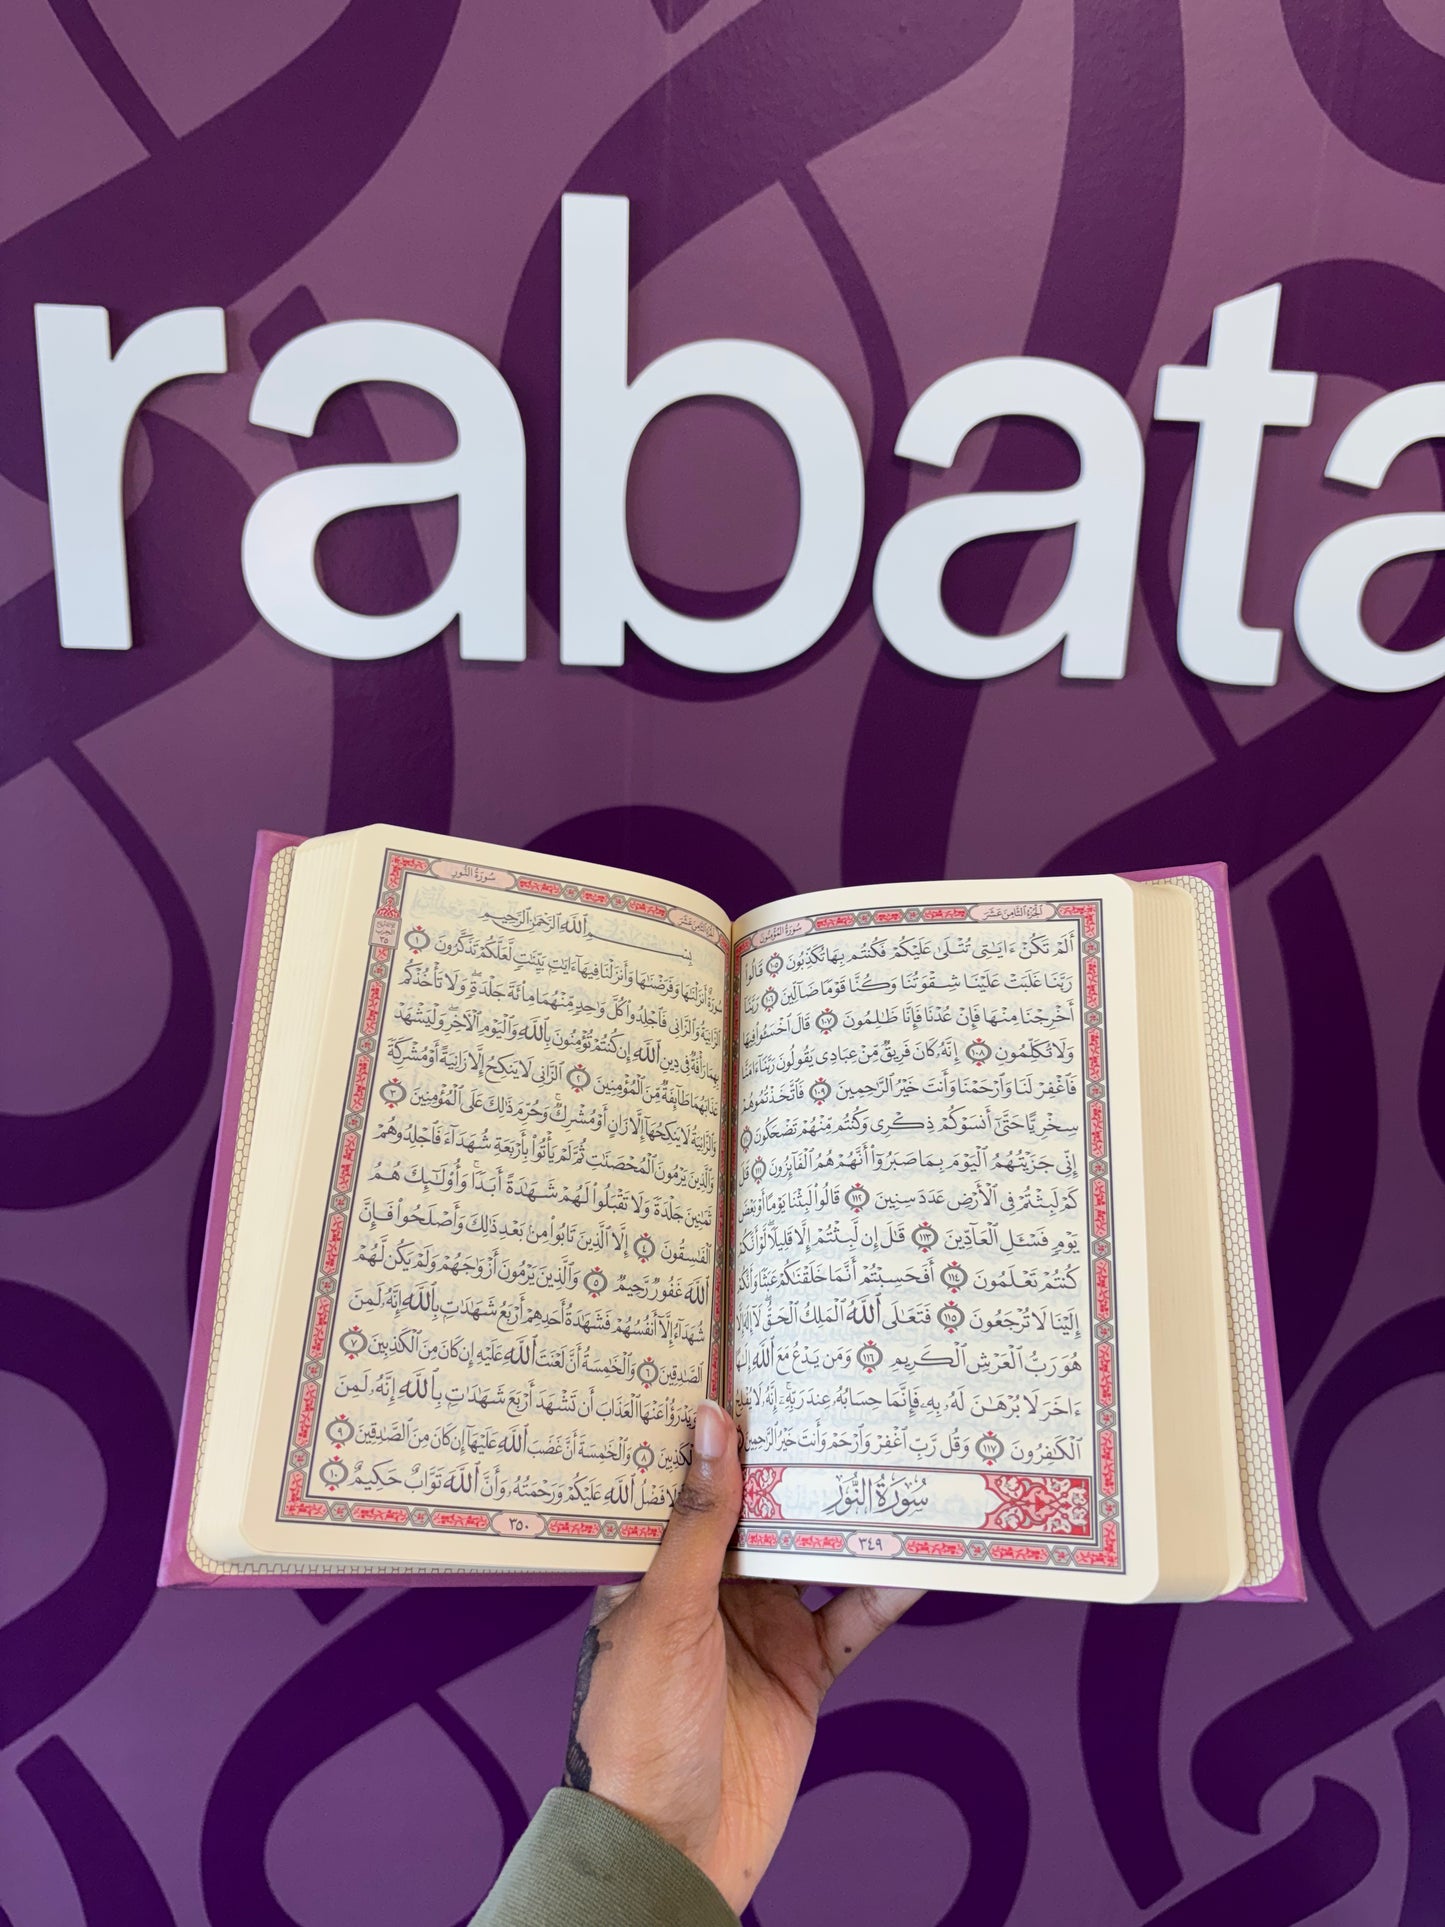 rabata
الجُزْءُ الثَّامِنَ عَشَرَ سُورَةُ المُؤْمِنُونَ
أَلَمْ تَكُنْ ءَايَٰتِى تُتْلَىٰ عَلَيْكُمْ فَكُنتُم بِهَا تُكَذِّبُونَ ١٠٥ قَالُوا۟
رَبَّنَا غَلَبَتْ عَلَيْنَا شِقْوَتُنَا وَكُنَّا قَوْمًا ضَآلِّينَ ١٠٦ رَبَّنَآ
أَخْرِجْنَا مِنْهَا فَإِنْ عُدْنَا فَإِنَّا ظَٰلِمُونَ ١٠٧ قَالَ ٱخْسَـُٔوا۟ فِيهَا
وَلَا تُكَلِّمُونِ ١٠٨ إِنَّهُۥ كَانَ فَرِيقٌ مِّنْ عِبَادِى يَقُولُونَ رَبَّنَآ ءَامَنَّا
فَٱغْفِرْ لَنَا وَٱرْحَمْنَا وَأَنتَ خَيْرُ ٱلرَّٰحِمِينَ ١٠٩ فَٱتَّخَذْتُمُوهُمْ
سِخْرِيًّا حَتَّىٰٓ أَنسَوْكُمْ ذِكْرِى وَكُنتُم مِّنْهُمْ تَضْحَكُونَ ١١٠
إِنِّى جَزَيْتُهُمُ ٱلْيَوْمَ بِمَا صَبَرُوٓا۟ أَنَّهُمْ هُمُ ٱلْفَآئِزُونَ ١١١ قَٰلَ
كَمْ لَبِثْتُمْ فِى ٱلْأَرْضِ عَدَدَ سِنِينَ ١١٢ قَالُوا۟ لَبِثْنَا يَوْمًا أَوْ بَعْضَ
يَوْمٍ فَسْـَٔلِ ٱلْعَآدِّينَ ١١٣ قَٰلَ إِن لَّبِثْتُمْ إِلَّا قَلِيلًا لَّوْ أَنَّكُمْ
كُنتُمْ تَعْلَمُونَ ١١٤ أَفَحَسِبْتُمْ أَنَّمَا خَلَقْنَٰكُمْ عَبَثًا وَأَنَّكُمْ
إِلَيْنَا لَا تُرْجَعُونَ ١١٥ فَتَعَٰلَى ٱللَّهُ ٱلْمَلِكُ ٱلْحَقُّ لَآ إِلَٰهَ إِلَّا
هُوَ رَبُّ ٱلْعَرْشِ ٱلْكَرِيمِ ١١٦ وَمَن يَدْعُ مَعَ ٱللَّهِ إِلَٰهًا
ءَاخَرَ لَا بُرْهَٰنَ لَهُۥ بِهِۦ فَإِنَّمَا حِسَابُهُۥ عِندَ رَبِّهِۦٓ إِنَّهُۥ لَا يُفْلِحُ
ٱلْكَٰفِرُونَ ١١٧ وَقُل رَّبِّ ٱغْفِرْ وَٱرْحَمْ وَأَنتَ خَيْرُ ٱلرَّٰحِمِينَ
سُورَةُ النُّورِ
٣٤٩
الجُزْءُ الثَّامِنَ عَشَرَ سُورَةُ النُّورِ
بِسْمِ ٱللَّهِ ٱلرَّحْمَٰنِ ٱلرَّحِيمِ
سُورَةٌ أَنزَلْنَٰهَا وَفَرَضْنَٰهَا وَأَنزَلْنَا فِيهَآ ءَايَٰتٍۭ بَيِّنَٰتٍ لَّعَلَّكُمْ تَذَكَّرُونَ ١
ٱلزَّانِيَةُ وَٱلزَّانِى فَٱجْلِدُوا۟ كُلَّ وَٰحِدٍ مِّنْهُمَا مِا۟ئَةَ جَلْدَةٍ وَلَا تَأْخُذْكُم
بِهِمَا رَأْفَةٌ فِى دِينِ ٱللَّهِ إِن كُنتُمْ تُؤْمِنُونَ بِٱللَّهِ وَٱلْيَوْمِ ٱلْءَاخِرِ وَلْيَشْهَدْ
عَذَابَهُمَا طَآئِفَةٌ مِّنَ ٱلْمُؤْمِنِينَ ٢ ٱلزَّانِى لَا يَنكِحُ إِلَّا زَانِيَةً أَوْ مُشْرِكَةً
وَٱلزَّانِيَةُ لَا يَنكِحُهَآ إِلَّا زَانٍ أَوْ مُشْرِكٌ وَحُرِّمَ ذَٰلِكَ عَلَى ٱلْمُؤْمِنِينَ ٣
وَٱلَّذِينَ يَرْمُونَ ٱلْمُحْصَنَٰتِ ثُمَّ لَمْ يَأْتُوا۟ بِأَرْبَعَةِ شُهَدَآءَ فَٱجْلِدُوهُمْ
ثَمَٰنِينَ جَلْدَةً وَلَا تَقْبَلُوا۟ لَهُمْ شَهَٰدَةً أَبَدًا وَأُو۟لَٰٓئِكَ هُمُ
ٱلْفَٰسِقُونَ ٤ إِلَّا ٱلَّذِينَ تَابُوا۟ مِنۢ بَعْدِ ذَٰلِكَ وَأَصْلَحُوا۟ فَإِنَّ
ٱللَّهَ غَفُورٌ رَّحِيمٌ ٥ وَٱلَّذِينَ يَرْمُونَ أَزْوَٰجَهُمْ وَلَمْ يَكُن لَّهُمْ
شُهَدَآءُ إِلَّآ أَنفُسُهُمْ فَشَهَٰدَةُ أَحَدِهِمْ أَرْبَعُ شَهَٰدَٰتٍۭ بِٱللَّهِ إِنَّهُۥ لَمِنَ
ٱلصَّٰدِقِينَ ٦ وَٱلْخَٰمِسَةُ أَنَّ لَعْنَتَ ٱللَّهِ عَلَيْهِ إِن كَانَ مِنَ ٱلْكَٰذِبِينَ ٧
وَيَدْرَؤُا۟ عَنْهَا ٱلْعَذَابَ أَن تَشْهَدَ أَرْبَعَ شَهَٰدَٰتٍۭ بِٱللَّهِ إِنَّهُۥ لَمِنَ
ٱلْكَٰذِبِينَ ٨ وَٱلْخَٰمِسَةَ أَنَّ غَضَبَ ٱللَّهِ عَلَيْهَآ إِن كَانَ مِنَ ٱلصَّٰدِقِينَ ٩
فَضْلُ ٱللَّهِ عَلَيْكُمْ وَرَحْمَتُهُۥ وَأَنَّ ٱللَّهَ تَوَّابٌ حَكِيمٌ ١٠
٣٥٠